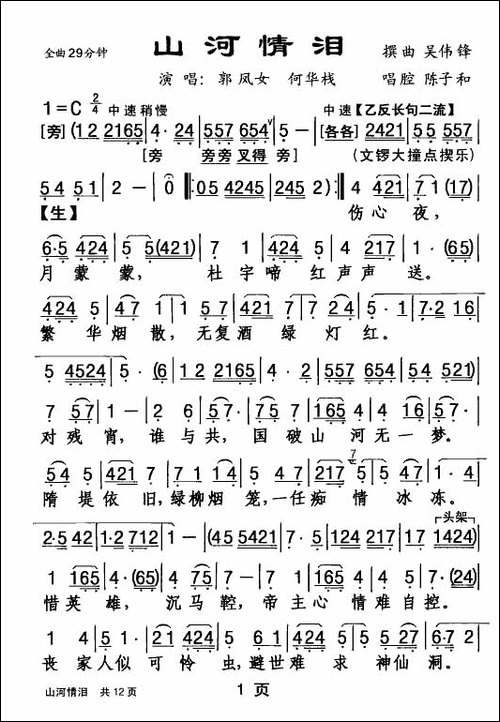 全曲29分钟 山河情泪 撰曲 吴伟锋
演唱：郭凤女 何华栈 唱腔 陈子和
1=C 2/4 中速稍慢 中速【乙反长句二流】
[旁] (1 2 2165 | 4· 24 | 557 654ᵛ | 5 - | [各各] 2421 | 55 557 |
[旁 旁旁叉得 旁] (文锣大撞点揳乐)
54 51 | 2 - | 0 ‖: 05 4245 | 245 2) :‖ 4 421 | 71 (17) |
【生】 伤心夜，
6·5 424 | 5 5(421) | 7 1 | 424 5 | 4 217 | 1·(65) |
月蒙蒙， 杜宇啼红声声送。
424 5 | 47 124 | 5·7 | 421 7 | 724 | 5·1 | 7·2 16 |
繁华烟散，无复酒绿灯红。
5 4524 | 5·(6 | 12 2165 | 4·2 | 557 654 | 5 54 517 |
7 57 | 1 - | 2 6 | 5·7 | 75 7 | 165 4 | 165 4·2 |
对残宵，谁与共，国破山河无一梦。
504 5 | 421 7 | 7 57 | 1· 7 | 4 2 | 217 5 | 24 2 | 1·4 |
隋堤依旧，绿柳烟笼，一任痴情冰冻。
┌头架┐
2·5 42 | 1·2 712 | 1 - | (45 5421 | 57 124 | 217 1424) |
1 165 | 4·(65) | 4 75 | 7 - | 1 2 | 1 165 | 5·7 | (24) |
惜英雄，沉马鞚，帝主心情难自控。
1 4 | 5·7 | 21 424 | 5 17 | 1 424 | 5 24 | 5 2 | 6·27 |
丧家人似可怜虫，避世难求神仙洞。
山河情泪 共12页 1 页